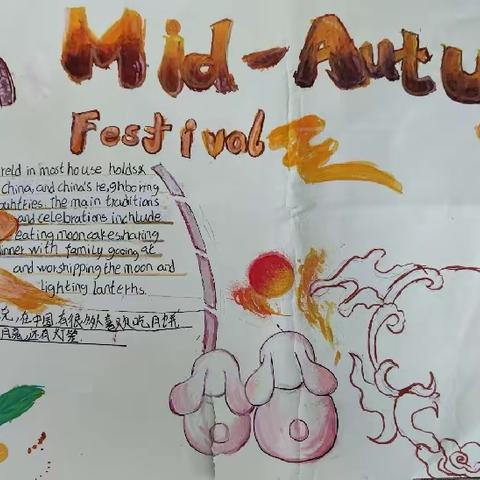 Mid-Autu
Festival
held in most house holds
China, and china's neighboring
countries. The main traditions
and celebrations inchlude
eating mooncakesharing
inner with family gooing at
and worshipping the moon and
lighting lanterns.
在中国有很多人喜欢吃月饼
月亮,还有灯笼.